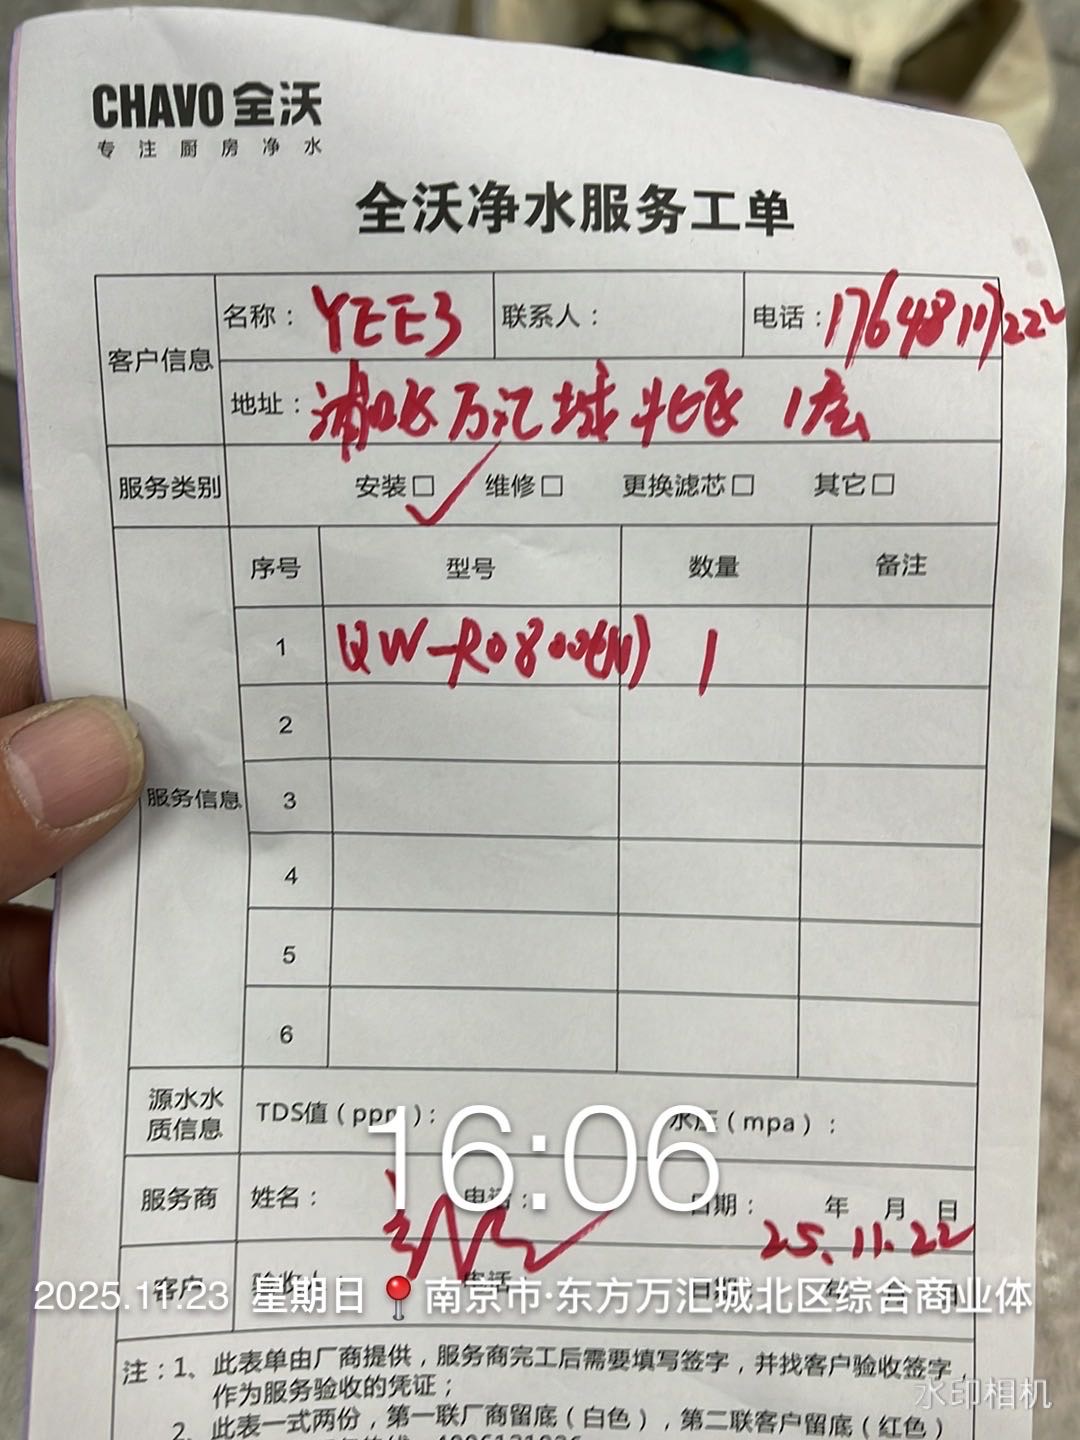 CHAVO 全沃
专注厨房净水
全沃净水服务工单
客户信息
名称： YEE3 联系人： 电话：17648111222
地址： 浦口区万汇城北区 1层
服务类别 安装□ ✓ 维修□ 更换滤芯□ 其它□
服务信息
序号 型号 数量 备注
1 QW-RO800(N) 1
2
3
4
5
6
源水水质信息 TDS值（ppm）： 水压（mpa）：
16:06
服务商 姓名： 电话： 日期： 年 月 日
25.11.22
客户 验收人 电话 日期 年 月 日
2025.11.23 星期日 南京市·东方万汇城北区综合商业体
注：1、此表单由厂商提供，服务商完工后需要填写签字，并找客户验收签字，
作为服务验收的凭证；
水印相机
2、此表一式两份，第一联厂商留底（白色），第二联客户留底（红色）